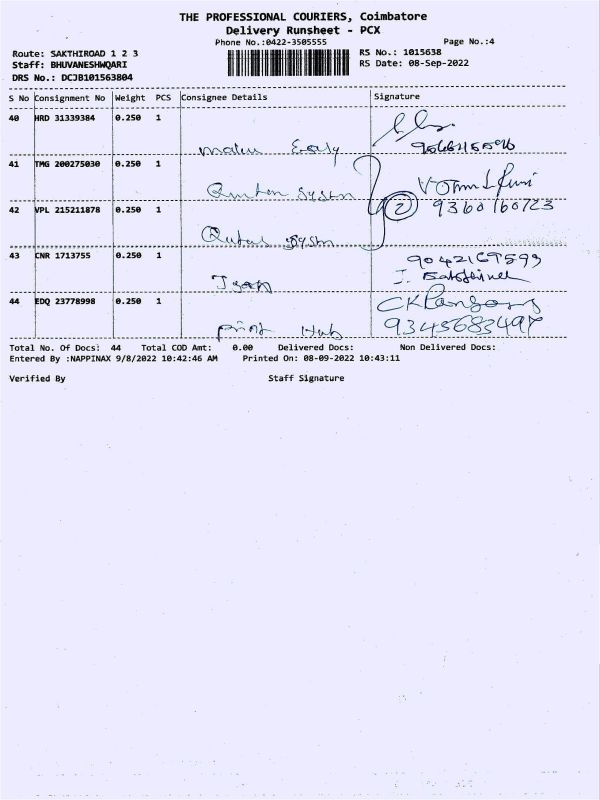 THE PROFESSIONAL COURIERS, Coimbatore
Delivery Runsheet - PCX
Phone No.:0422-3505555 Page No.:4
Route: SAKTHIROAD 1 2 3 RS No.: 1015638
Staff: BHUVANESHWQARI RS Date: 08-Sep-2022
DRS No.: DCJB101563804
S No Consignment No Weight PCS Consignee Details Signature
40 HRD 31339384 0.250 1
41 TMG 200275030 0.250 1
System
42 VPL 215211878 0.250 1 2 9360160723
System
43 CNR 1713755 0.250 1
44 EDQ 23778998 0.250 1
Print Hub
Total No. Of Docs: 44 Total COD Amt: 0.00 Delivered Docs: Non Delivered Docs:
Entered By :NAPPINAX 9/8/2022 10:42:46 AM Printed On: 08-09-2022 10:43:11
Verified By Staff Signature